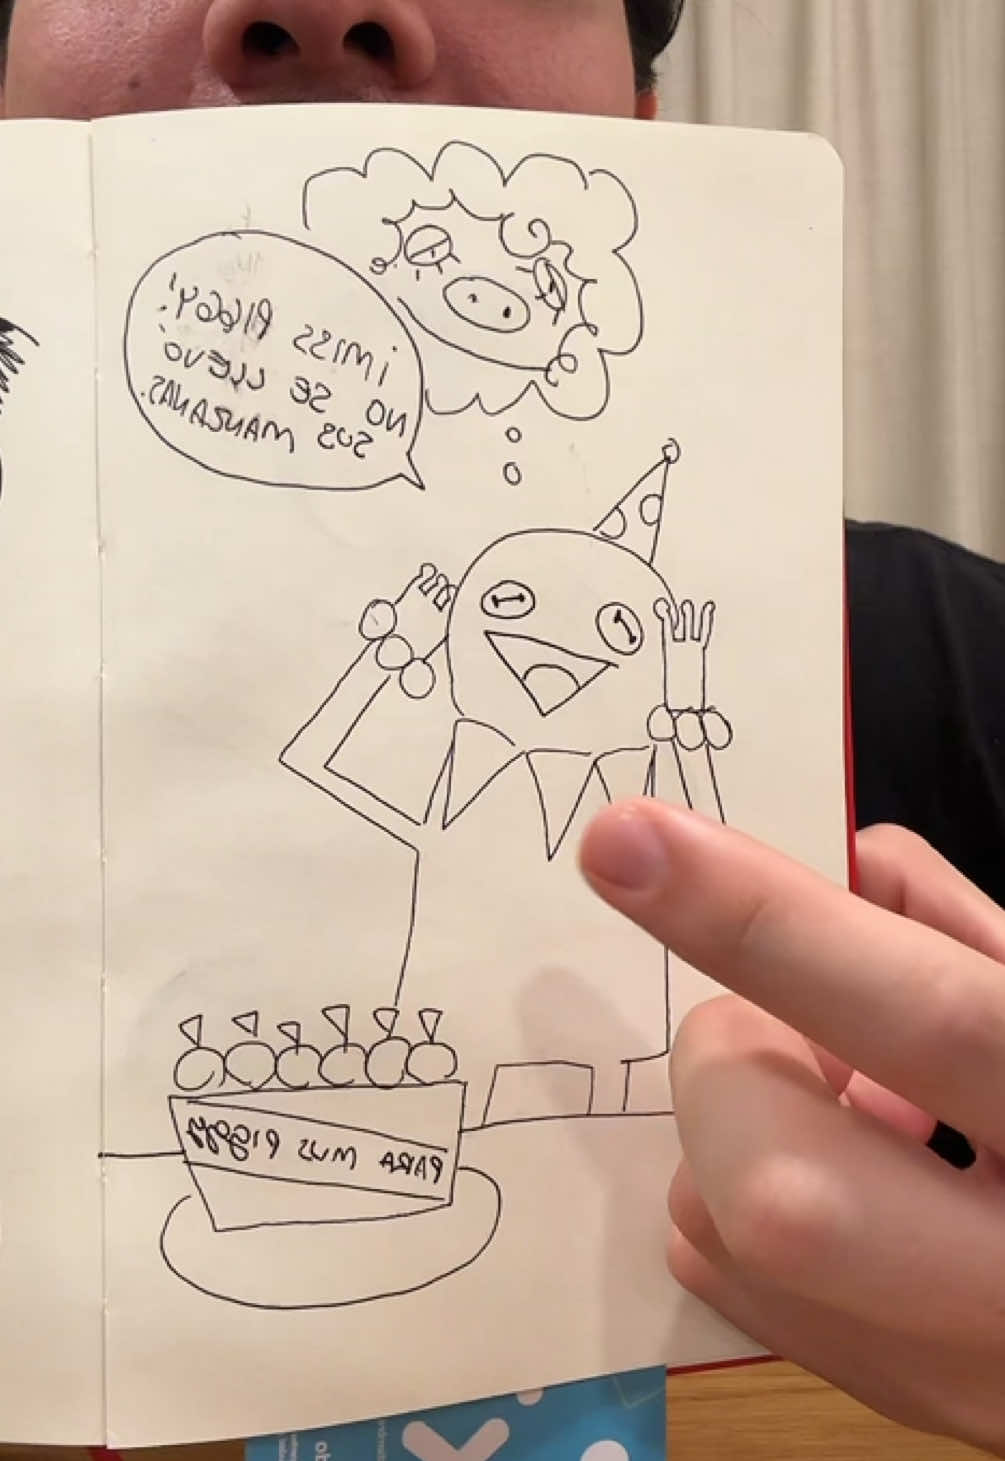 ¡MISS PIGGY!
NO SE LLEVÓ
SUS MANZANAS.
PARA MUS PIGGY